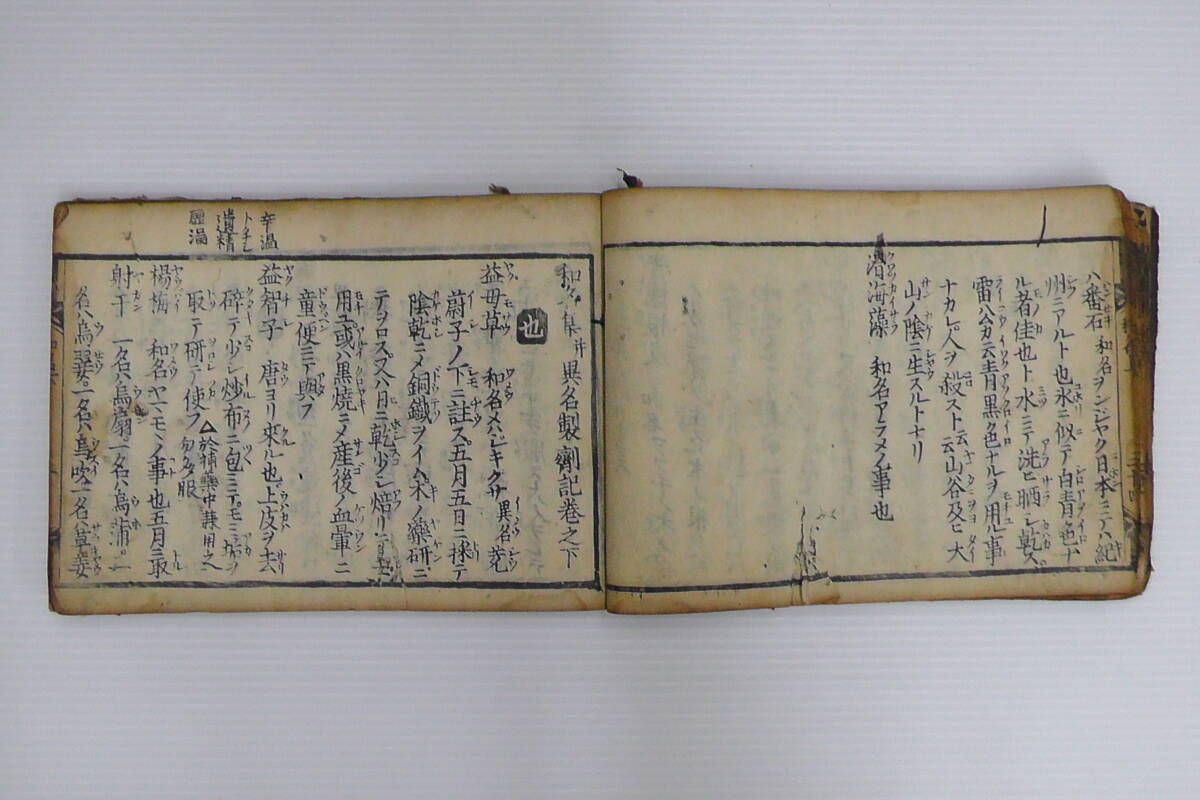 番石 和名ヲンジヤク日本ニテハ紀
州ニアルト也氷ニ似テ白青色也ナ
ル者佳也ト水ニテ洗ヒ晒シ乾ス
雷公カ云青黒ク色ナルヲ用ル事
ナカレ人ヲ殺スト云云山谷及ヒ大
山ノ陰ニ生スルトナリ
海藻 和名アラメノ事也
異名製劑記巻之下
也
益母草 和名メハジキクサ 異名茺
蔚子ノ下ニ註ス五月五日ニ採テ
陰乾ニメ銅鐵ヲイム木ノ藥研ニ
テヲロス又ハ日ニ乾少シ焙リ
用ユ或ハ黒焼ニメ産後ノ血暈ニ
童便ニテ與フ
益智子 唐ヨリ来ル也上皮ヲ去
碎テ少シ炒布ニ包ミテモミ垢ヲ
取テ研テ使フ△於補藥中兼用之
勿多服
楊梅 和名ヤマモモノ事也五月ニ取
射干 一名ハ烏扇一名ハ烏蒲一
名ハ烏翣一名ハ烏吹一名ハ
辛温
遺精